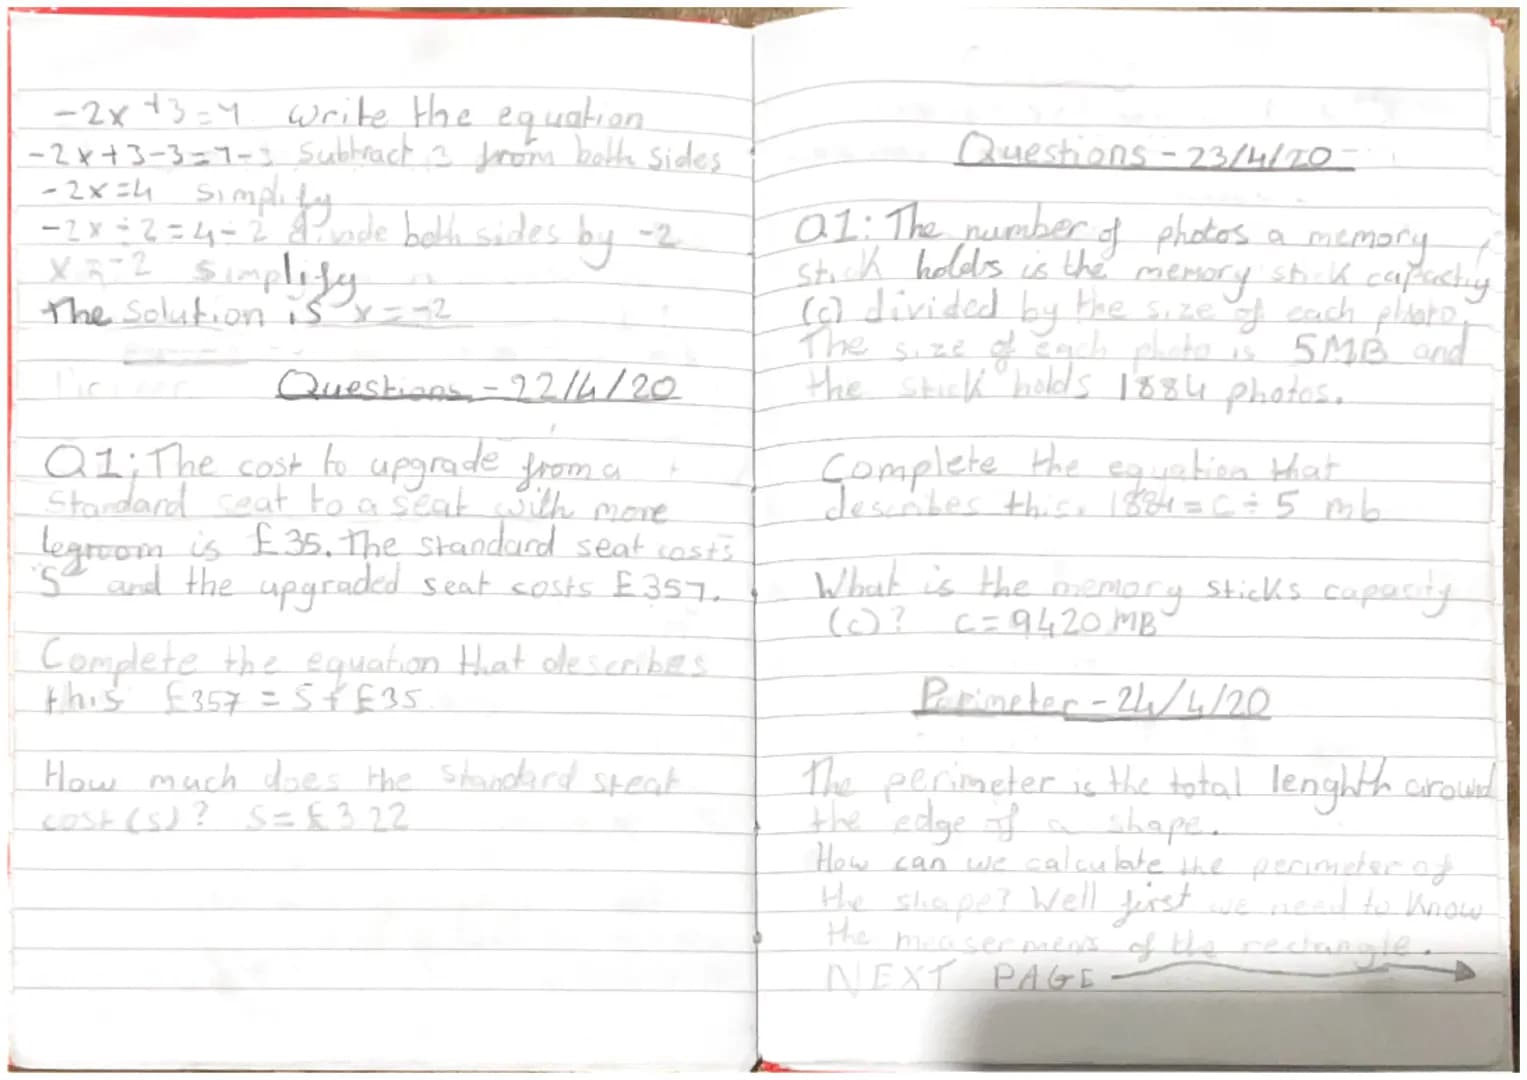 -2x+3=7 Write the equation
-2x+3-3=7-3 Subtract 3 from both sides
-2x=4 Simplify
-2x÷2=4-2 divide both sides by -2
x=-2 simplify
The Solution is x=-2
Questions - 22/4/20
Q1: The cost to upgrade from a
Standard seat to a seat with more
legroom is £35. The standard seat costs
S and the upgraded seat costs £357.
Complete the equation that describes
this £357 = S + £35
How much does the standard steat
cost (s)? S=£322
Questions - 23/4/20
Q1: The number of photos a memory
stick holds is the memory stick capactiy
(c) divided by the size of each photo.
The size of each photo is 5MB and
the stick holds 1884 photos.
Complete the equation that
describes this. 1884=C÷5 mb
What is the memory sticks capacity
(c)? C=9420 MB
Perimeter - 24/4/20
The perimeter is the total lenghth around
the edge of a shape.
How can we calculate the perimeter of
the shape? Well first we need to know
the measermens of the rectangle.
NEXT PAGE →